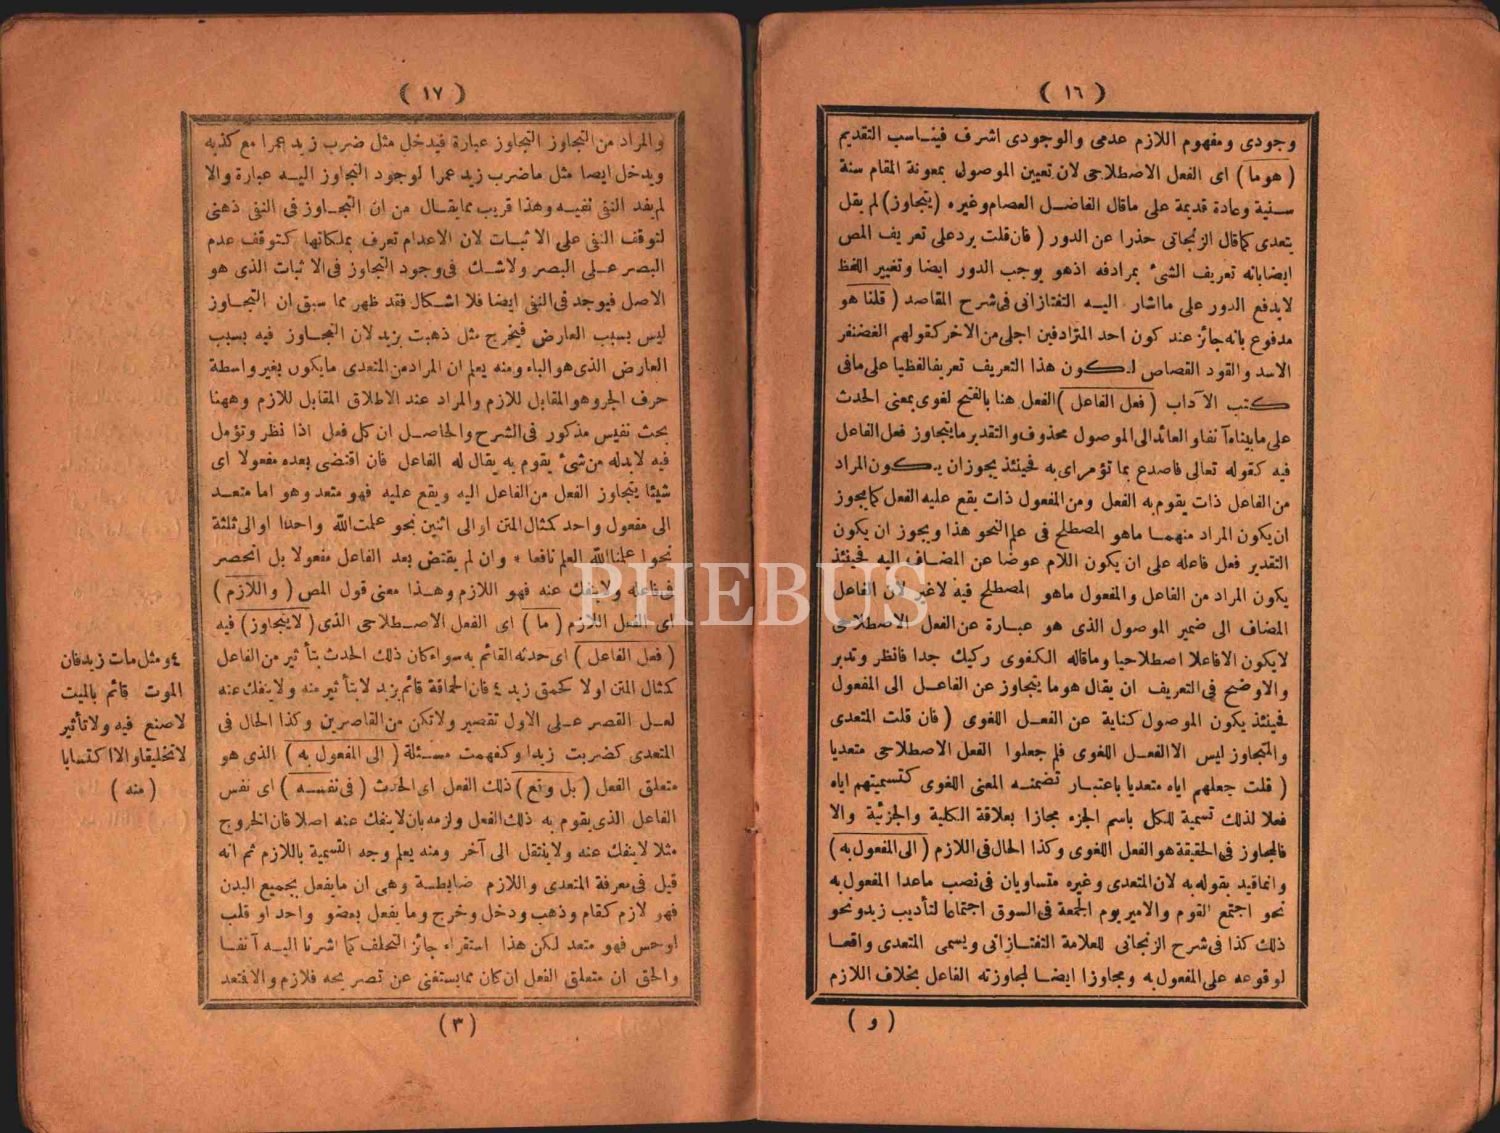 ( ١٦ )
وجودى ومفهوم اللازم عدمى والوجودى اشرف فيناسب التقديم
( هوما ) اى الفعل الاصطلاحى لان تعيين الموصول بمعونة المقام سنة
سنية وعادة قديمة على ماقال الفاضل العصام وغيره ( يتجاوز ) لم يقل
يتعدى كماقال الزنجانى حذرا عن الدور ( فان قلت يرد على تعريف المص
ايضابانه تعريف الشئ بمرادفه اذهو يوجب الدور ايضا وتغيير اللفظ
لايدفع الدور على مااشار اليه التفتازانى فى شرح المقاصد ( قلنا هو
مدفوع بانه جائز عند كون احد المترادفين اجلى من الاخر كقولهم الغضنفر
الاسد والقود القصاص لكون هذا التعريف تعريفا لفظيا على مافى
كتب الآداب ( فعل الفاعل ) الفعل هنا بالفتح لغوى بمعنى الحدث
على مابيناه آنفا والعائد الى الموصول محذوف والتقدير مايتجاوز فعل الفاعل
فيه كقوله تعالى فاصدع بما تؤمر اى به فحينئذ يجوز ان يكون المراد
من الفاعل ذات يقوم به الفعل ومن المفعول ذات يقع عليه الفعل كمايجوز
ان يكون المراد منهما ماهو المصطلح فى علم النحو هذا ويجوز ان يكون
التقدير فعل فاعله على ان يكون اللام عوضا عن المضاف اليه فحينئذ
يكون المراد من الفاعل والمفعول ماهو المصطلح فيه لاغير لان الفاعل
المضاف الى ضمير الموصول الذى هو عبارة عن الفعل الاصطلاحى
لايكون الافاعلا اصطلاحيا وماقاله الكفوى ركيك جدا فانظر وتدبر
والاوضح فى التعريف ان يقال هوما يتجاوز عن الفاعل الى المفعول
فحينئذ يكون الموصول كناية عن الفعل اللغوى ( فان قلت المتعدى
والمتجاوز ليس الاالفعل اللغوى فلم جعلوا الفعل الاصطلاحى متعديا
( قلت جعلهم اياه متعديا باعتبار تضمنه المعنى اللغوى كتسميتهم اياه
فعلا لذلك تسمية للكل باسم الجزء مجازا بعلاقة الكلية والجزئية والا
فالمجاوز فى الحقيقة هو الفعل اللغوى وكذا الحال فى اللازم ( الى المفعول به )
وانماقيد بقوله به لان المتعدى وغيره متساويان فى نصب ماعدا المفعول به
نحو اجتمع القوم والامير يوم الجمعة فى السوق اجتماعا لتأديب زيد ونحو
ذلك كذا فى شرح الزنجانى للعلامة التفتازانى ويسمى المتعدى واقعا
لوقوعه على المفعول به ومجاوزا ايضا لمجاوزته الفاعل بخلاف اللازم
( و )
( ١٧ )
والمراد من التجاوز التجاوز عبارة فيدخل مثل ضرب زيد عمرا مع كذبه
ويدخل ايضا مثل ماضرب زيد عمرا لوجود التجاوز اليه عبارة والا
لم يفد النفى نفيه وهذا قريب ممايقال من ان التجاوز فى النفى ذهنى
لتوقف النفى على الاثبات لان الاعدام تعرف بملكاتها كتوقف عدم
البصر على البصر ولاشك فى وجود التجاوز فى الاثبات الذى هو
الاصل فيوجد فى النفى ايضا فلا اشكال فقد ظهر مما سبق ان التجاوز
ليس بسبب العارض فيخرج مثل ذهبت بزيد لان التجاوز فيه بسبب
العارض الذى هو الباء ومنه يعلم ان المراد من المتعدى مايكون بغير واسطة
حرف الجر وهو المقابل للازم والمراد عند الاطلاق المقابل للازم وههنا
بحث نفيس مذكور فى الشرح والحاصل ان كل فعل اذا نظر وتؤمل
فيه لابدله من شئ يقوم به يقال له الفاعل فان اقتضى بعده مفعولا اى
شيئا يتجاوز الفعل من الفاعل اليه ويقع عليه فهو متعد وهو اما متعد
الى مفعول واحد كمثال المتن او الى اثنين نحو علمت الله واحدا او الى ثلثة
نحوا علمنا الله العلم نافعا * وان لم يقتض بعد الفاعل مفعولا بل انحصر
فى فاعله ولاينفك عنه فهو اللازم وهذا معنى قول المص ( واللازم )
اى الفعل اللازم ( ما ) اى الفعل الاصطلاحى الذى ( لايتجاوز ) فيه
( فعل الفاعل ) اى حدثه القائم به سواء كان ذلك الحدث بتأثير من الفاعل
كمثال المتن اولا كحمق زيد ٤ فان الحماقة قائم بزيد لابتأثير منه ولاينفك عنه
لعل القصر على الاول تقصير ولاتكن من القاصرين وكذا الحال فى
المتعدى كضربت زيدا وكفهمت مسئلة ( الى المفعول به ) الذى هو
متعلق الفعل ( بل وقع ) ذلك الفعل اى الحدث ( فى نفسه ) اى نفس
الفاعل الذى يقوم به ذلك الفعل ولزمه بان لاينفك عنه اصلا فان الخروج
مثلا لاينفك عنه ولاينتقل الى آخر ومنه يعلم وجه التسمية باللازم ثم انه
قيل فى معرفة المتعدى واللازم ضابطة وهى ان مايفعل بجميع البدن
فهو لازم كقام وذهب ودخل وخرج وما يفعل بعضو واحد او قلب
اوحس فهو متعد لكن هذا استقراء جائز التخلف كما اشرنا اليه آنفا
والحق ان متعلق الفعل ان كان ممايستغنى عن تصريحه فلازم والافتعد
٤ ومثل مات زيد فان
الموت قائم بالميت
لاصنع فيه ولاتأثير
لاتخليقا والا اكتسابا
( منه )
( ٣ )
PHEBUS